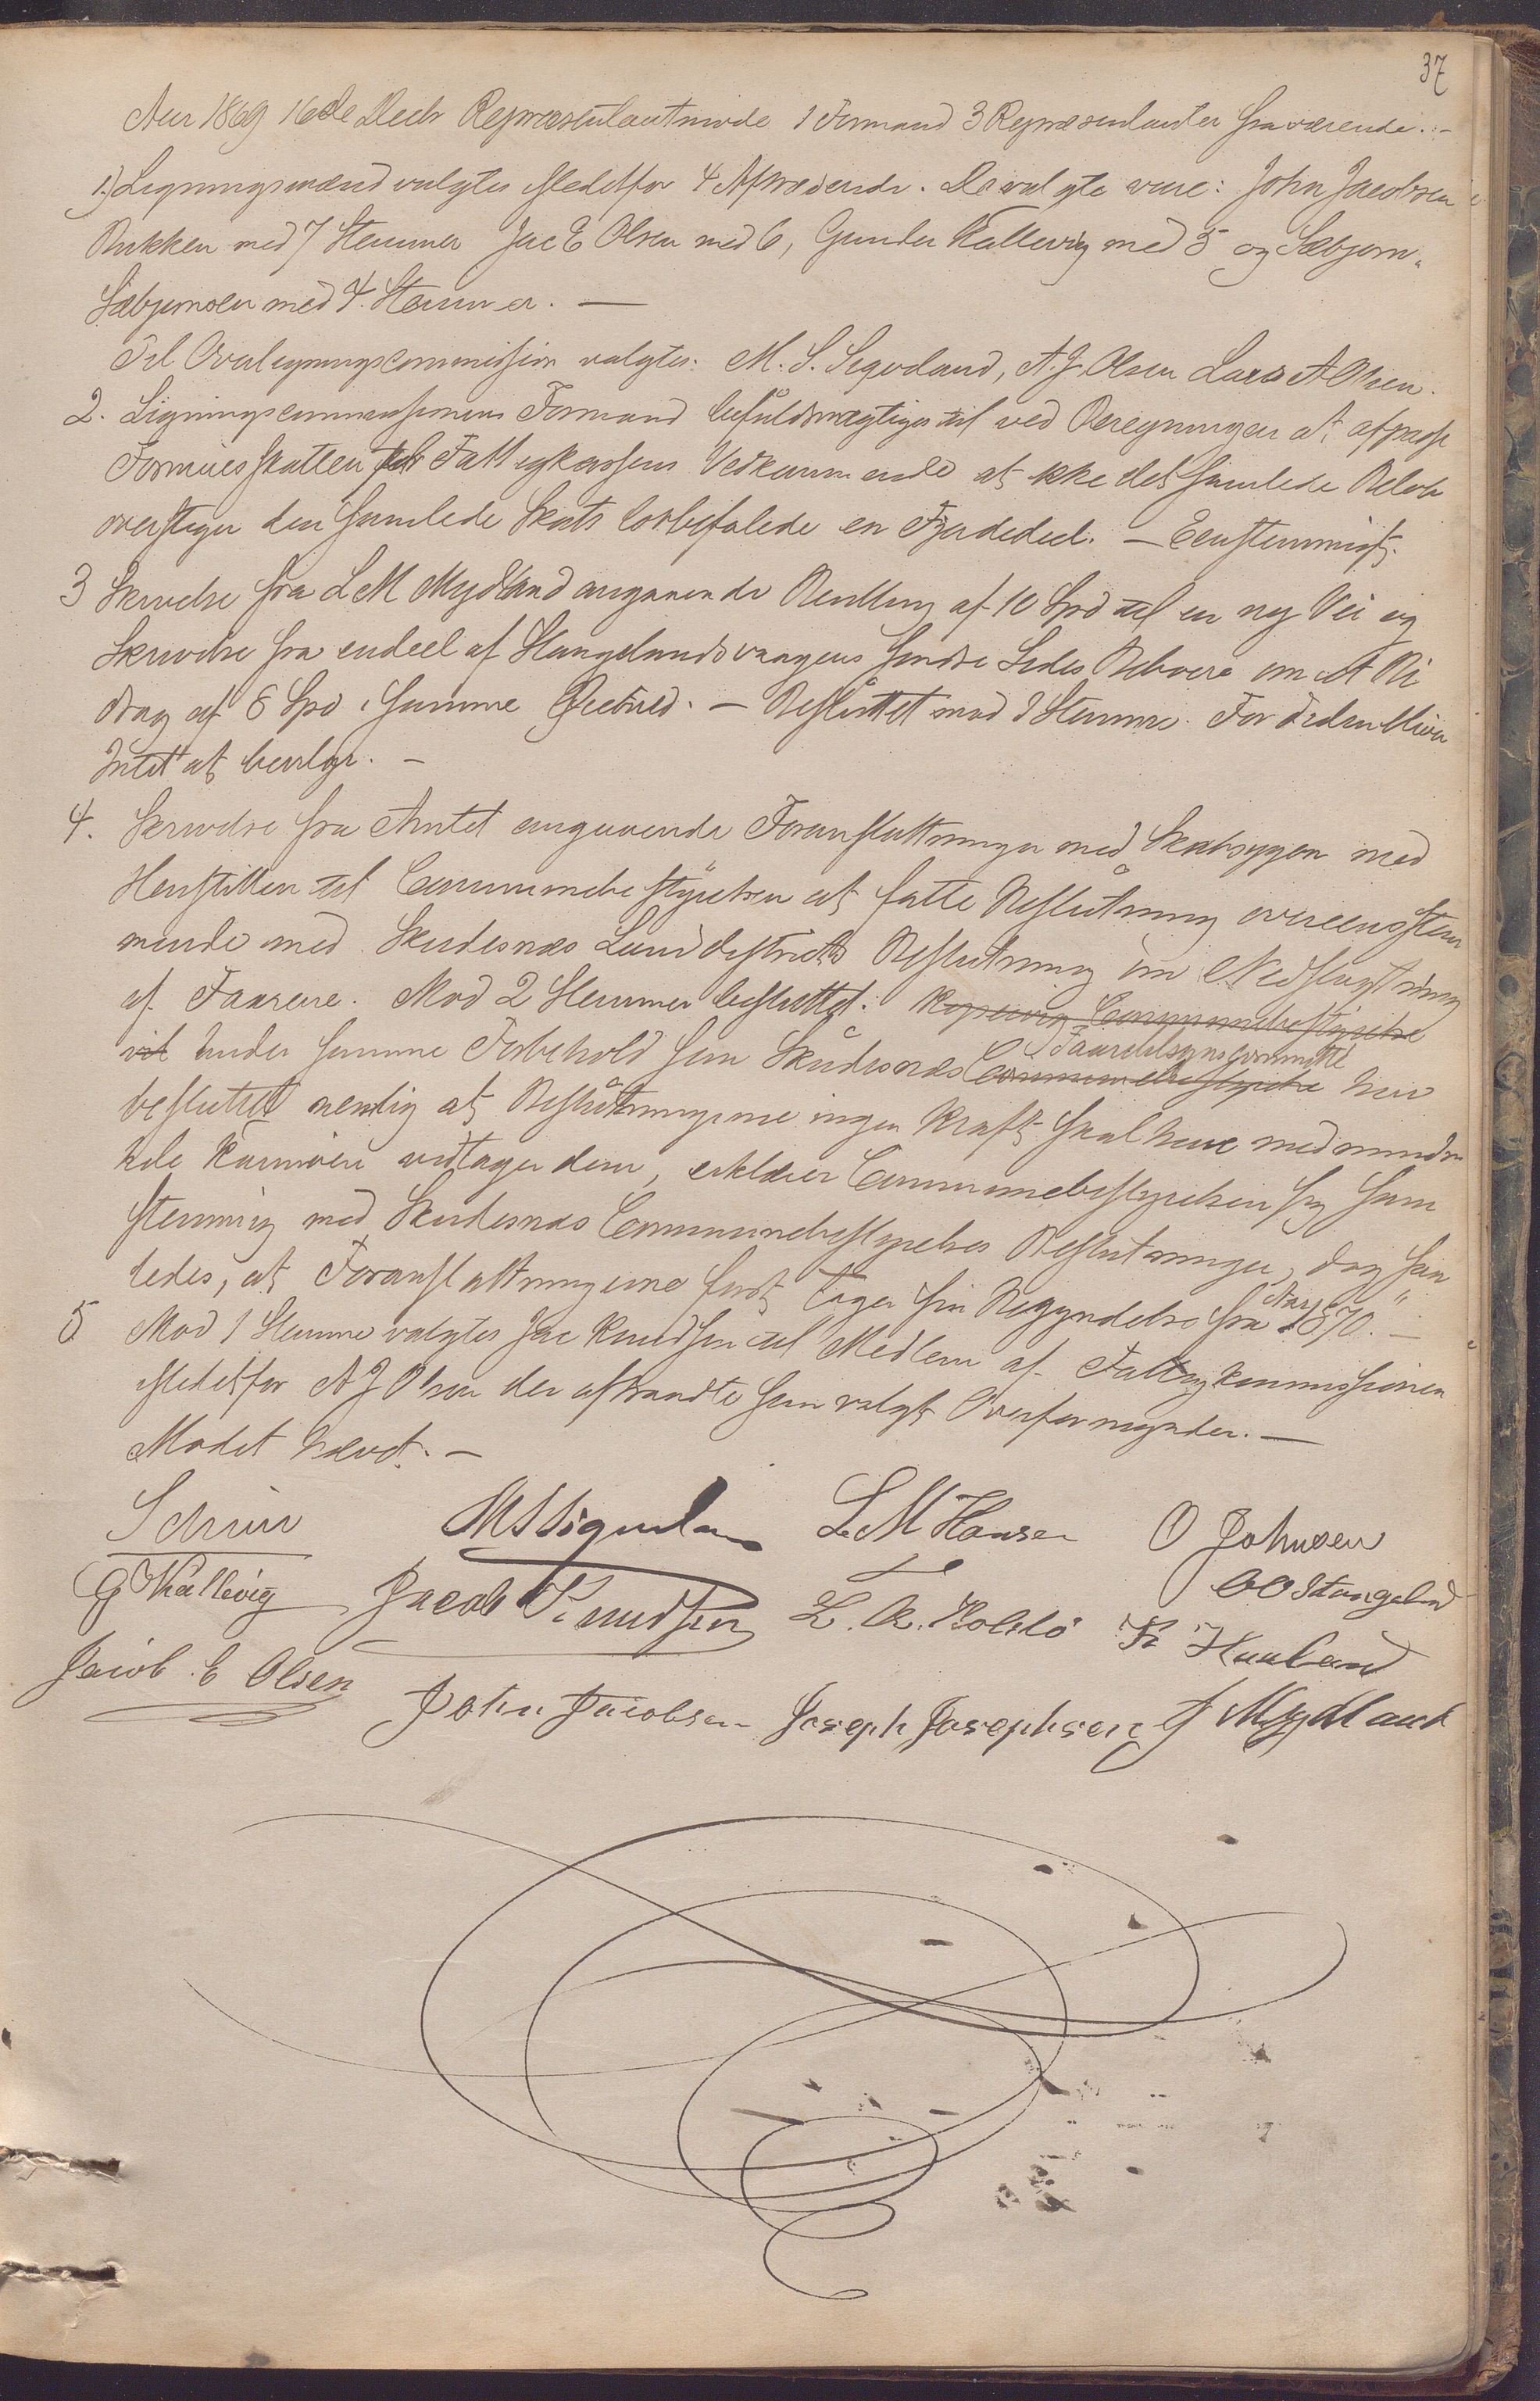 37
Aar 1869 16de Decbr Repræsentantmøde 1 Formand 3 Repræsentanter fraværende. –
1.) Ligningsmænd valgtes istedetfor 4 Aftrædende. De valgte vare: John Jacobsen
Bukken med 7 Stemmer Jac E Olsen med 6, Gunder Kallevig med 5 og Sæbjørn
Sæbjørnsen med 4 Stemmer. —
Til Overligningscommission valgtes: M. S. Sigvoland, A. J. Olsen Lars A Olsen.
2. Ligningscommissionens Formand befuldmægtiges til ved Beregningen at afpasse
Formuesskatten for Fattigkassens Vedkommende at ikke det samlede Beløb
overstiger den samlede Skats lovbefalede en Fjerdedeel. – Eenstemmigt.
3 Skrivelse fra L M Mydland angaaende Bevilling af 10 Spd til en ny Vei og
Skrivelse fra endeel af Stangelandsvaagens søndre Sides Beboere om et Bi
drag af 8 Spd i samme Øiemed. – Besluttet mod 3 Stemmer. For Tiden bliver
Intet at bevilge. –
4. Skrivelse fra Amtet angaaende Foranstaltninger med Skabsygen med
Henstillen til Communebestyrelsen at fatte Beslutning overeensstem
mende med Skudesnæs Landdistricts Beslutning om Nedslagtning
af Faarene. Mod 2 Stemmer besluttet: Kopervig Communebestyrelse
vil Under samme Forbehold som Skudesnæs Communebestyrelse har
Faaretilsynscommitte
besluttet nemlig at Beslutningerne ingen Kraft skal have medmindre
hele Karmøen vedtager dem, erklærer Communebestyrelsen sig sam
stemmig med Skudesnæs Communebestyrelses Beslutninger, dog saa
ledes, at Foranstaltningerne først tager sin Begyndelse fra Aar 1870. –
5 Mod 1 Stemme valgtes Jac Knudsen til Medlem af Fattigkommissionen
istedetfor A J Olsen der afsandte som valgt Overformynder. —
Mødet hævet. –
Schrüer M S Sigvola L. M Hansen O Johnsen
G Kallevig Jacob Knudsen L. A. O O Stangeland
Jacob. E Olsen K Haaland
John Jacobsen Joseph Josephsen J Mydland